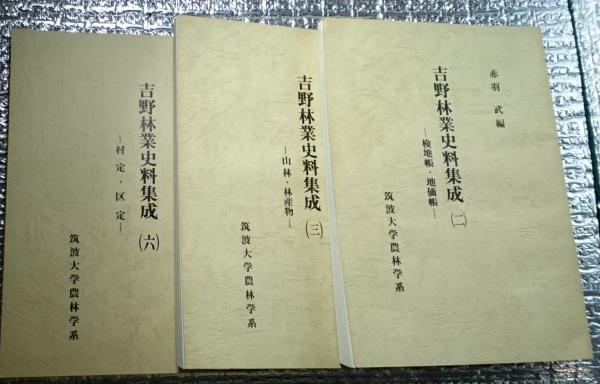 赤羽 武編
吉野林業史料集成(二)
―検地帳・地価帳―
筑波大学農林学系
吉野林業史料集成(三)
―山林・林産物―
筑波大学農林学系
吉野林業史料集成(六)
―村定・区定―
筑波大学農林学系